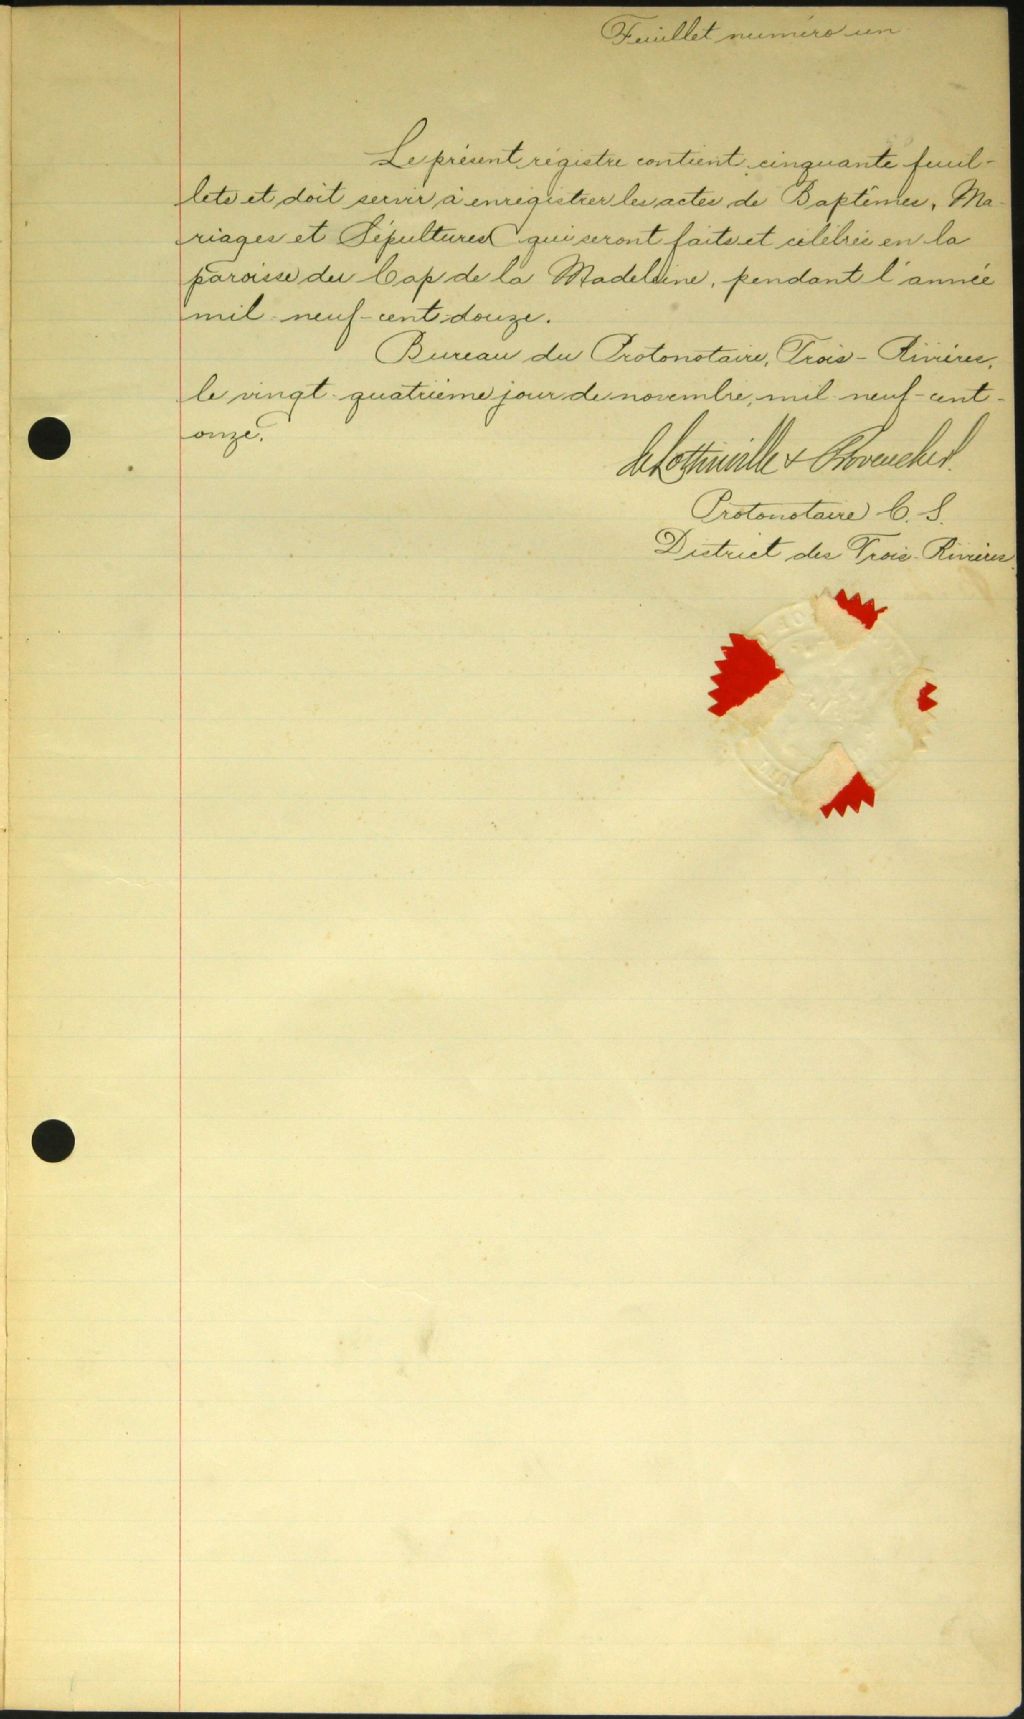 Feuillet numéro un
Le présent régistre contient cinquante feuil-
lets et doit servir à enrégistrer les actes de Baptêmes, Ma-
riages et Sépultures qui seront faits et célébrés en la
paroisse du Cap de la Madeleine, pendant l'année
mil-neuf-cent-douze.
Bureau du Protonotaire, Trois-Rivières,
le vingt-quatrième jour de novembre, mil-neuf-cent-
onze.
de Lottinville & Provencher
Protonotaire C. S.
District des Trois-Rivières.